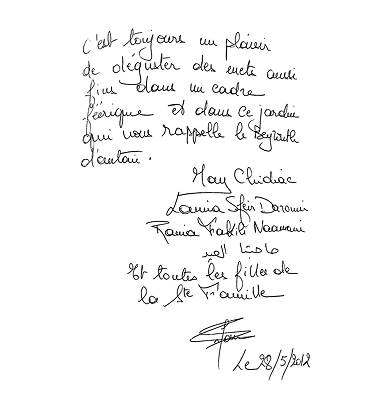 C'est toujours un plaisir
de déguster des mets aussi
fins dans un cadre
féérique et dans ce jardin
qui vous rappelle le Beyrouth
d'antan.
May Chidiac
Lamia Sfeir Darouni
Rania Naamani
Et toutes les filles de
la Ste Famille
Le 28/5/2012